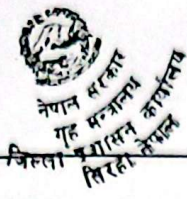 नेपाल सरकार
गृह मन्त्रालय
जिल्ला प्रशासन कार्यालय
सिरहा, नेपाल